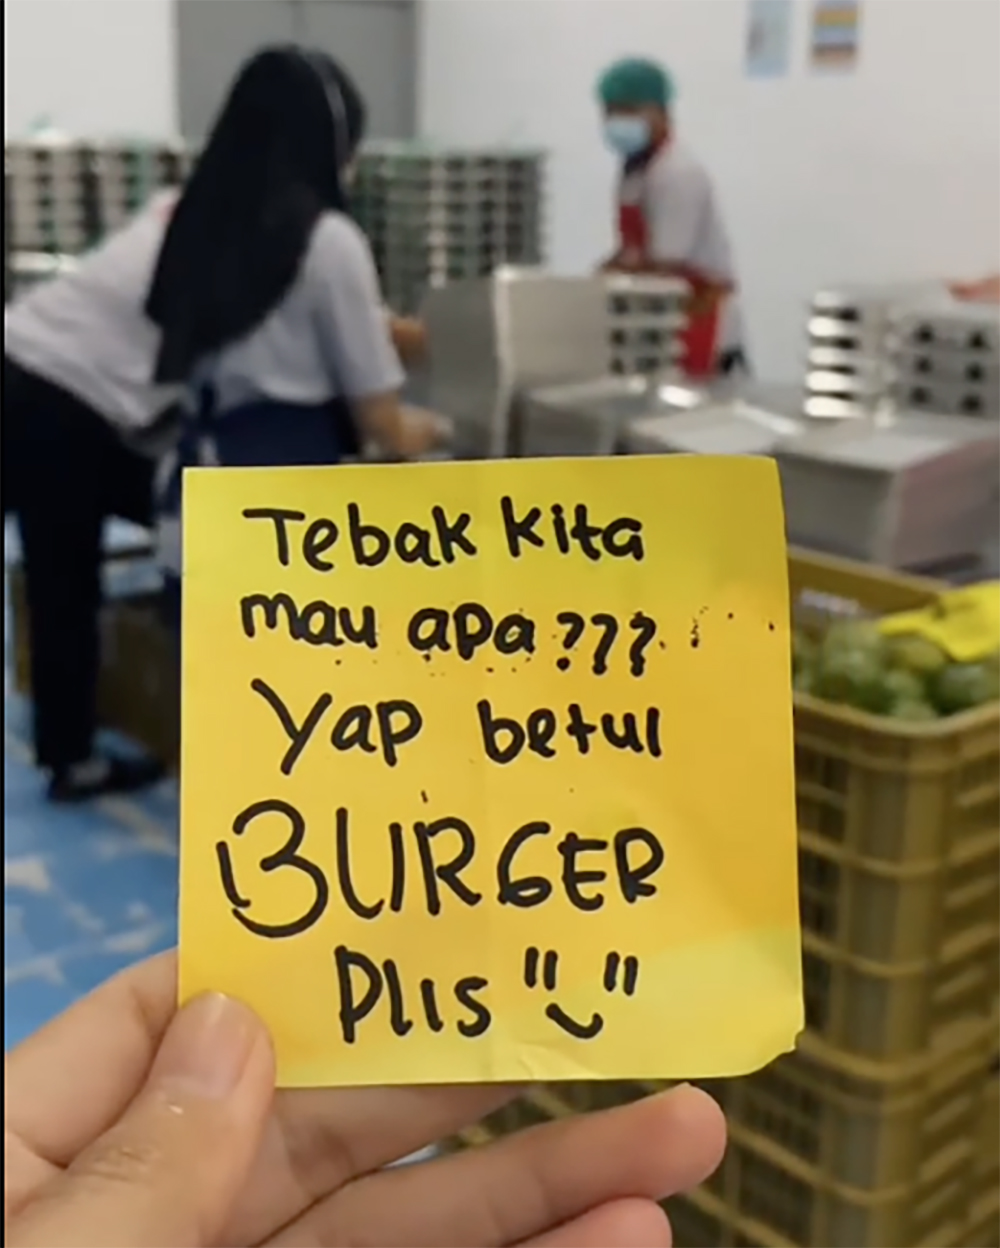 Tebak kita
mau apa???
Yap betul
BURGER
Plis "‿"